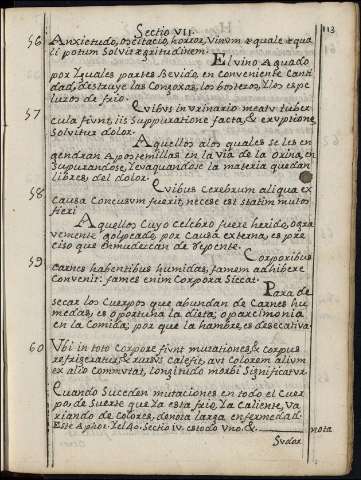 Sectio VII.
113
56 Anxietudo, oscitacio, horror, Vinum æquale æqua
li potum Solvit ægritudinem.
El vino Aguado
por Yguales partes Bevido, en conveniente Canti
dad, destruye las Congoxas, los bostezos, Y los espe
luzos de frio.
57 Quibus in urinario meatu tuber
cula fiunt, iis Suppuratione facta, & eruptione,
Solvitur dolor.
Aquellos a los quales se les en
gendran Apostemillas en la via de la Orina, en
Supurandose, Y evaquandose la materia quedan
libres, del dolor.
58 Quibus Cerebrum aliqua ex
Causa Concusum fuerit, necese est statim mutos
fieri
Aquellos Cuyo Celebro fuere herido, o gra
vemente golpeado, por Causa externa, es pre
ciso que enmudezcan de repente.
59 Corporibus
carnes habentibus humidas, famem adhibere
Convenit: fames enim Corpora Siccat.
Para de
secar los Cuerpos que abundan de Carnes hu
medas, es oportuna la dieta, o parcimonia
en la Comida; por que la hambre, es desecativa.
60 Ubi in toto Corpore fiunt mutationes, & corpus
refrigeratur, & rursus calefit, aut colorem alium
ex alio Commutat, longitudo morbi Significatur.
Cuando Suceden mutaciones en todo el Cuer
po, de Suerte que Ya esta frio, Ya Caliente, Va
riando de Colores, denota larga enfermedad.
Este Aphor. Y el 40. Sectio IV. es todo Uno, &. nota
Sudor